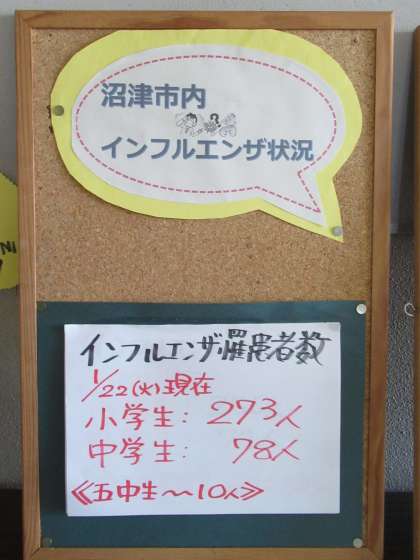 沼津市内
インフルエンザ状況
インフルエンザ罹患者数
1/22(火)現在
小学生: 273人
中学生: 78人
≪五中生〜10人≫